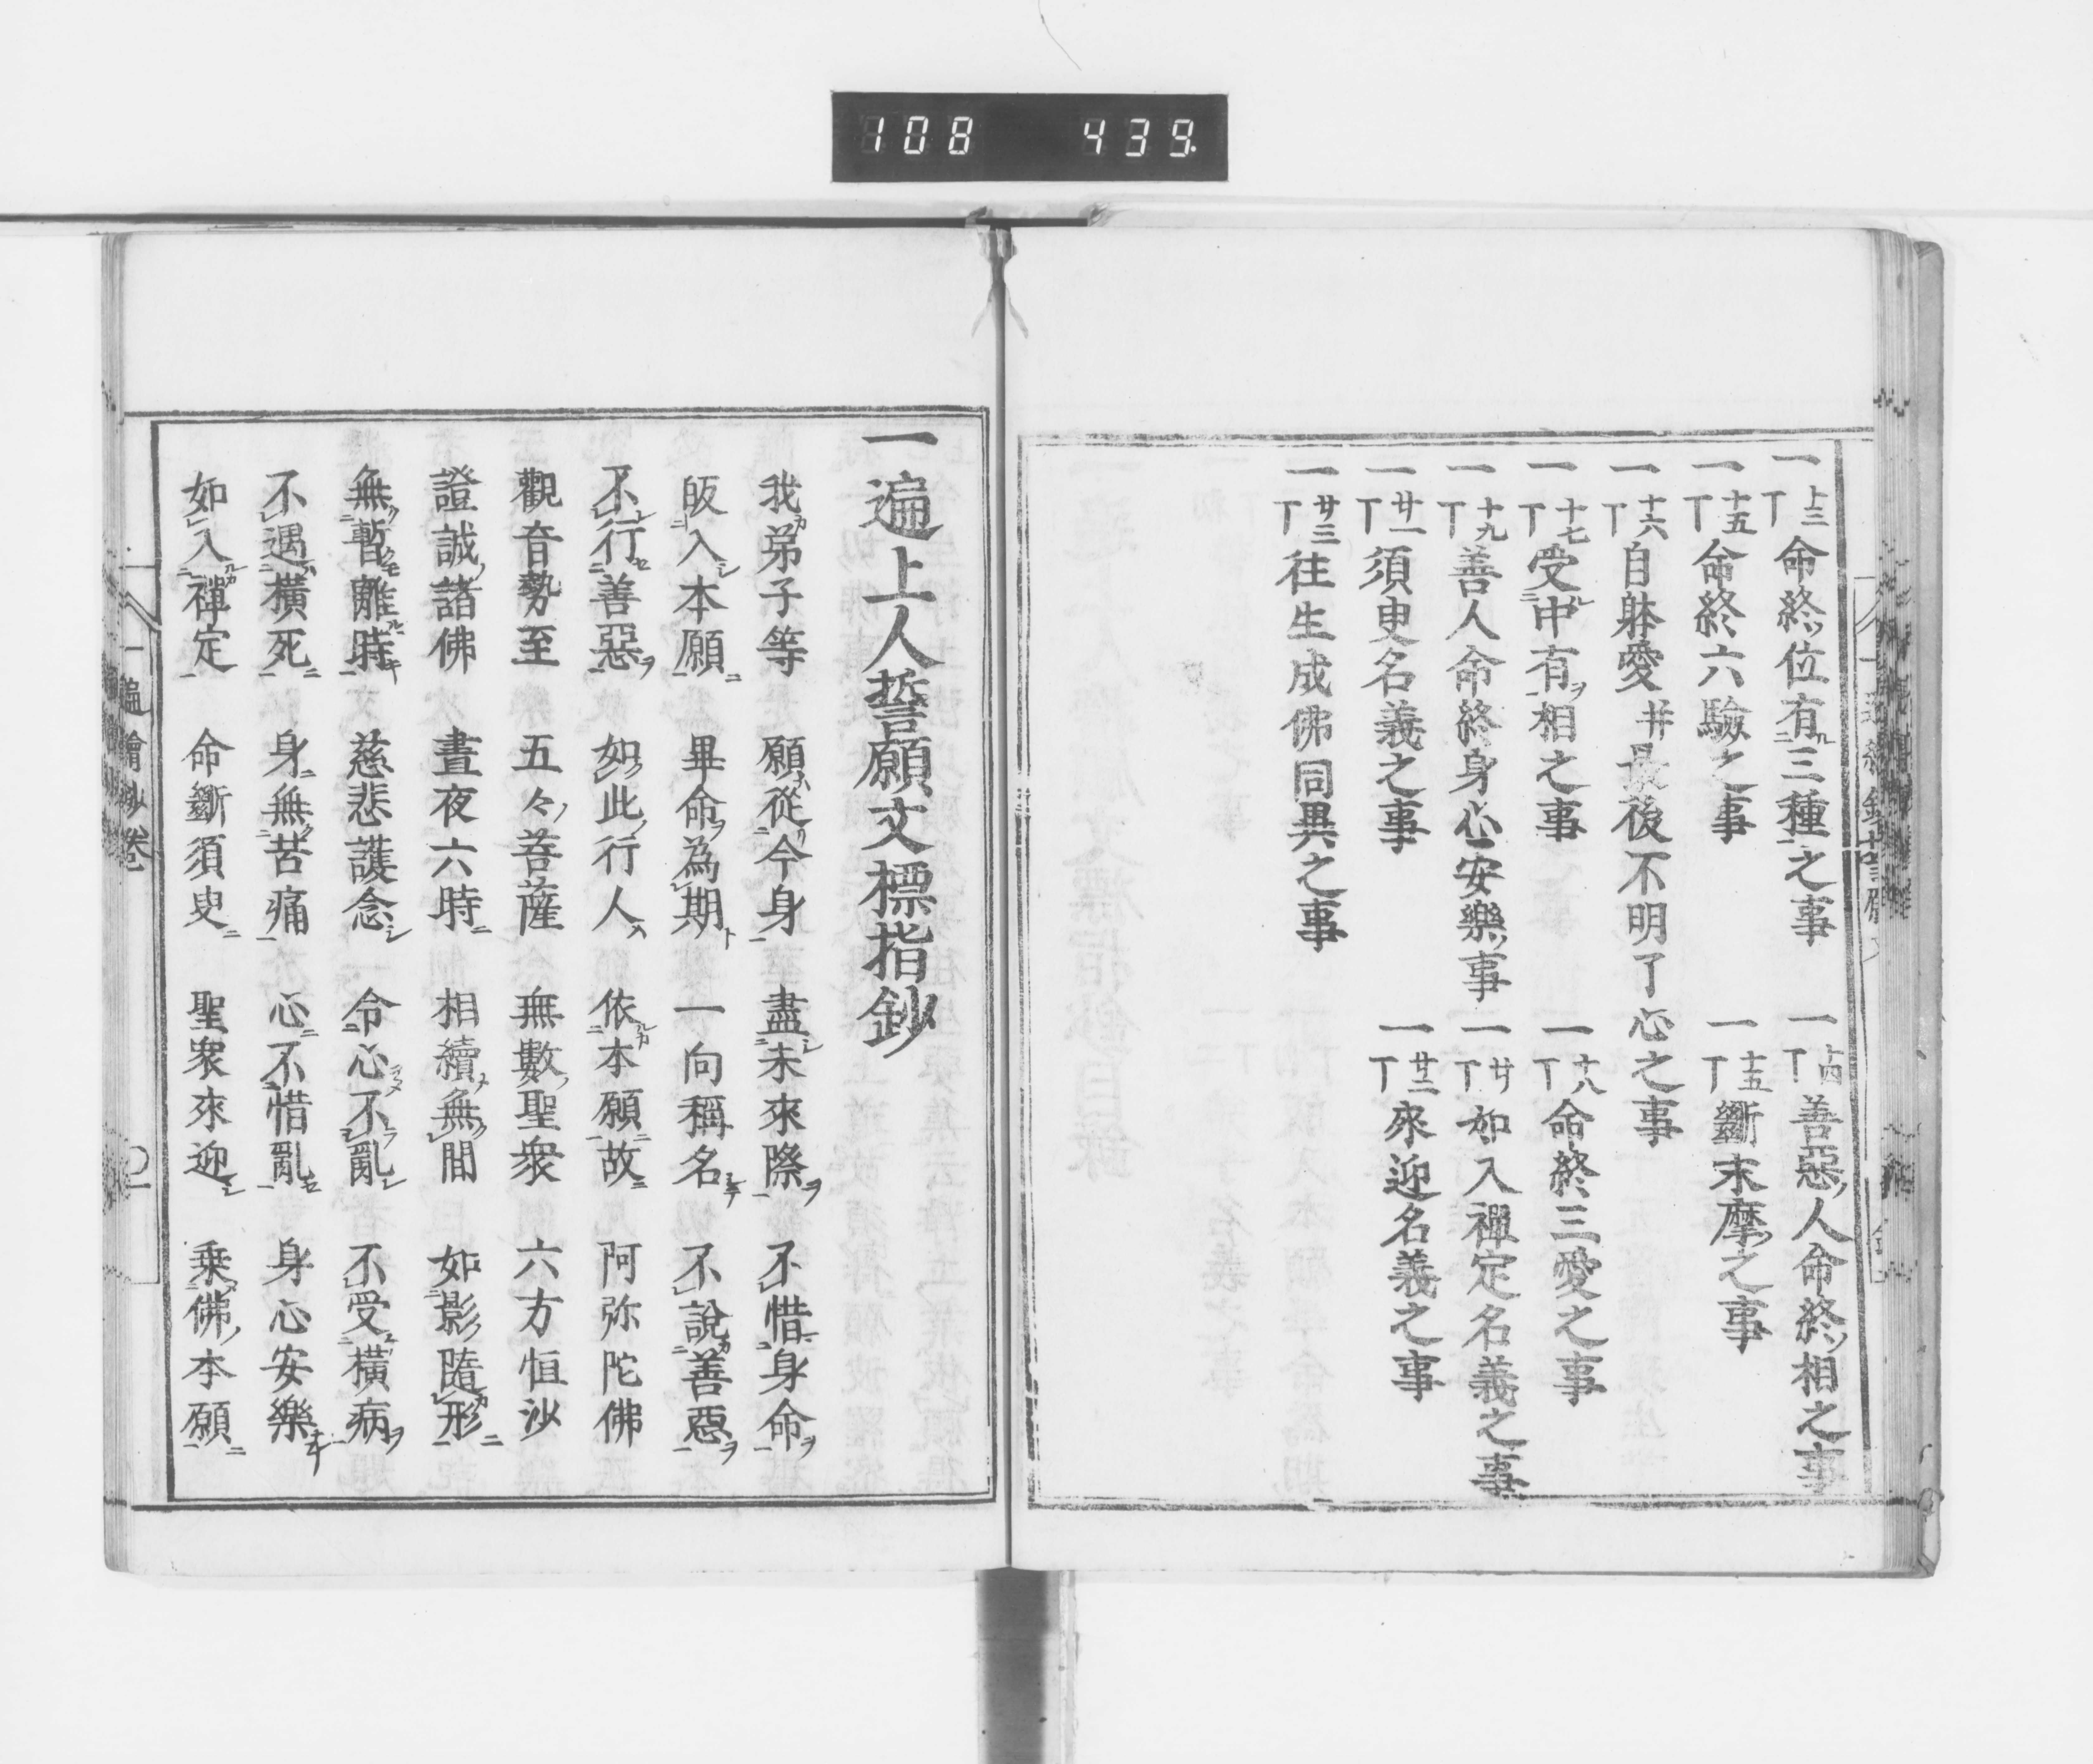 108 439.
一 十三丁 命終位有三種之事
一 十四丁 善惡人命終相之事
一 十五丁 命終六驗之事
一 十五丁 斷末摩之事
一 十六丁 自躰愛并最後不明了心之事
一 十七丁 受中有相之事
一 十八丁 命終三愛之事
一 十九丁 善人命終身心安樂事
一 廿丁 如入禪定名義之事
一 廿一丁 須臾名義之事
一 廿二丁 來迎名義之事
一 廿三丁 往生成佛同異之事
一遍上人誓願文標指鈔
我弟子等 願從今身 盡未來際 不惜身命
皈入本願 畢命為期 一向稱名 不說善惡
不行善惡 如此行人 依本願故 阿弥陀佛
觀音勢至 五々菩薩 無數聖衆 六方恒沙
證誠諸佛 晝夜六時 相續無間 如影隨形
無暫離時 慈悲護念 令心不亂 不受橫病
不遇橫死 身無苦痛 心不惜亂 身心安樂
如入禪定 命斷須臾 聖衆來迎 乗佛本願